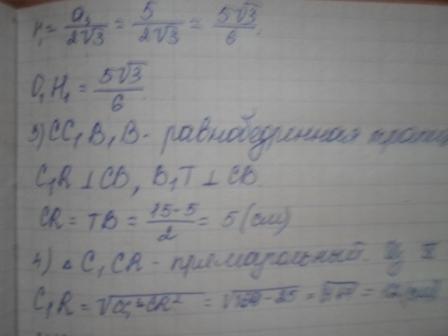 r₁ = a₃/2√3 = 5/2√3 = 5√3/6.
O₁H₁ = 5√3/6
3) CC₁B₁B - равнобедренная
C₁R ⊥ CB, B₁T ⊥ CB
CR = TB = 15-5/2 = 5 (см)
4) △ C₁CR - прямоугольный.
C₁R =